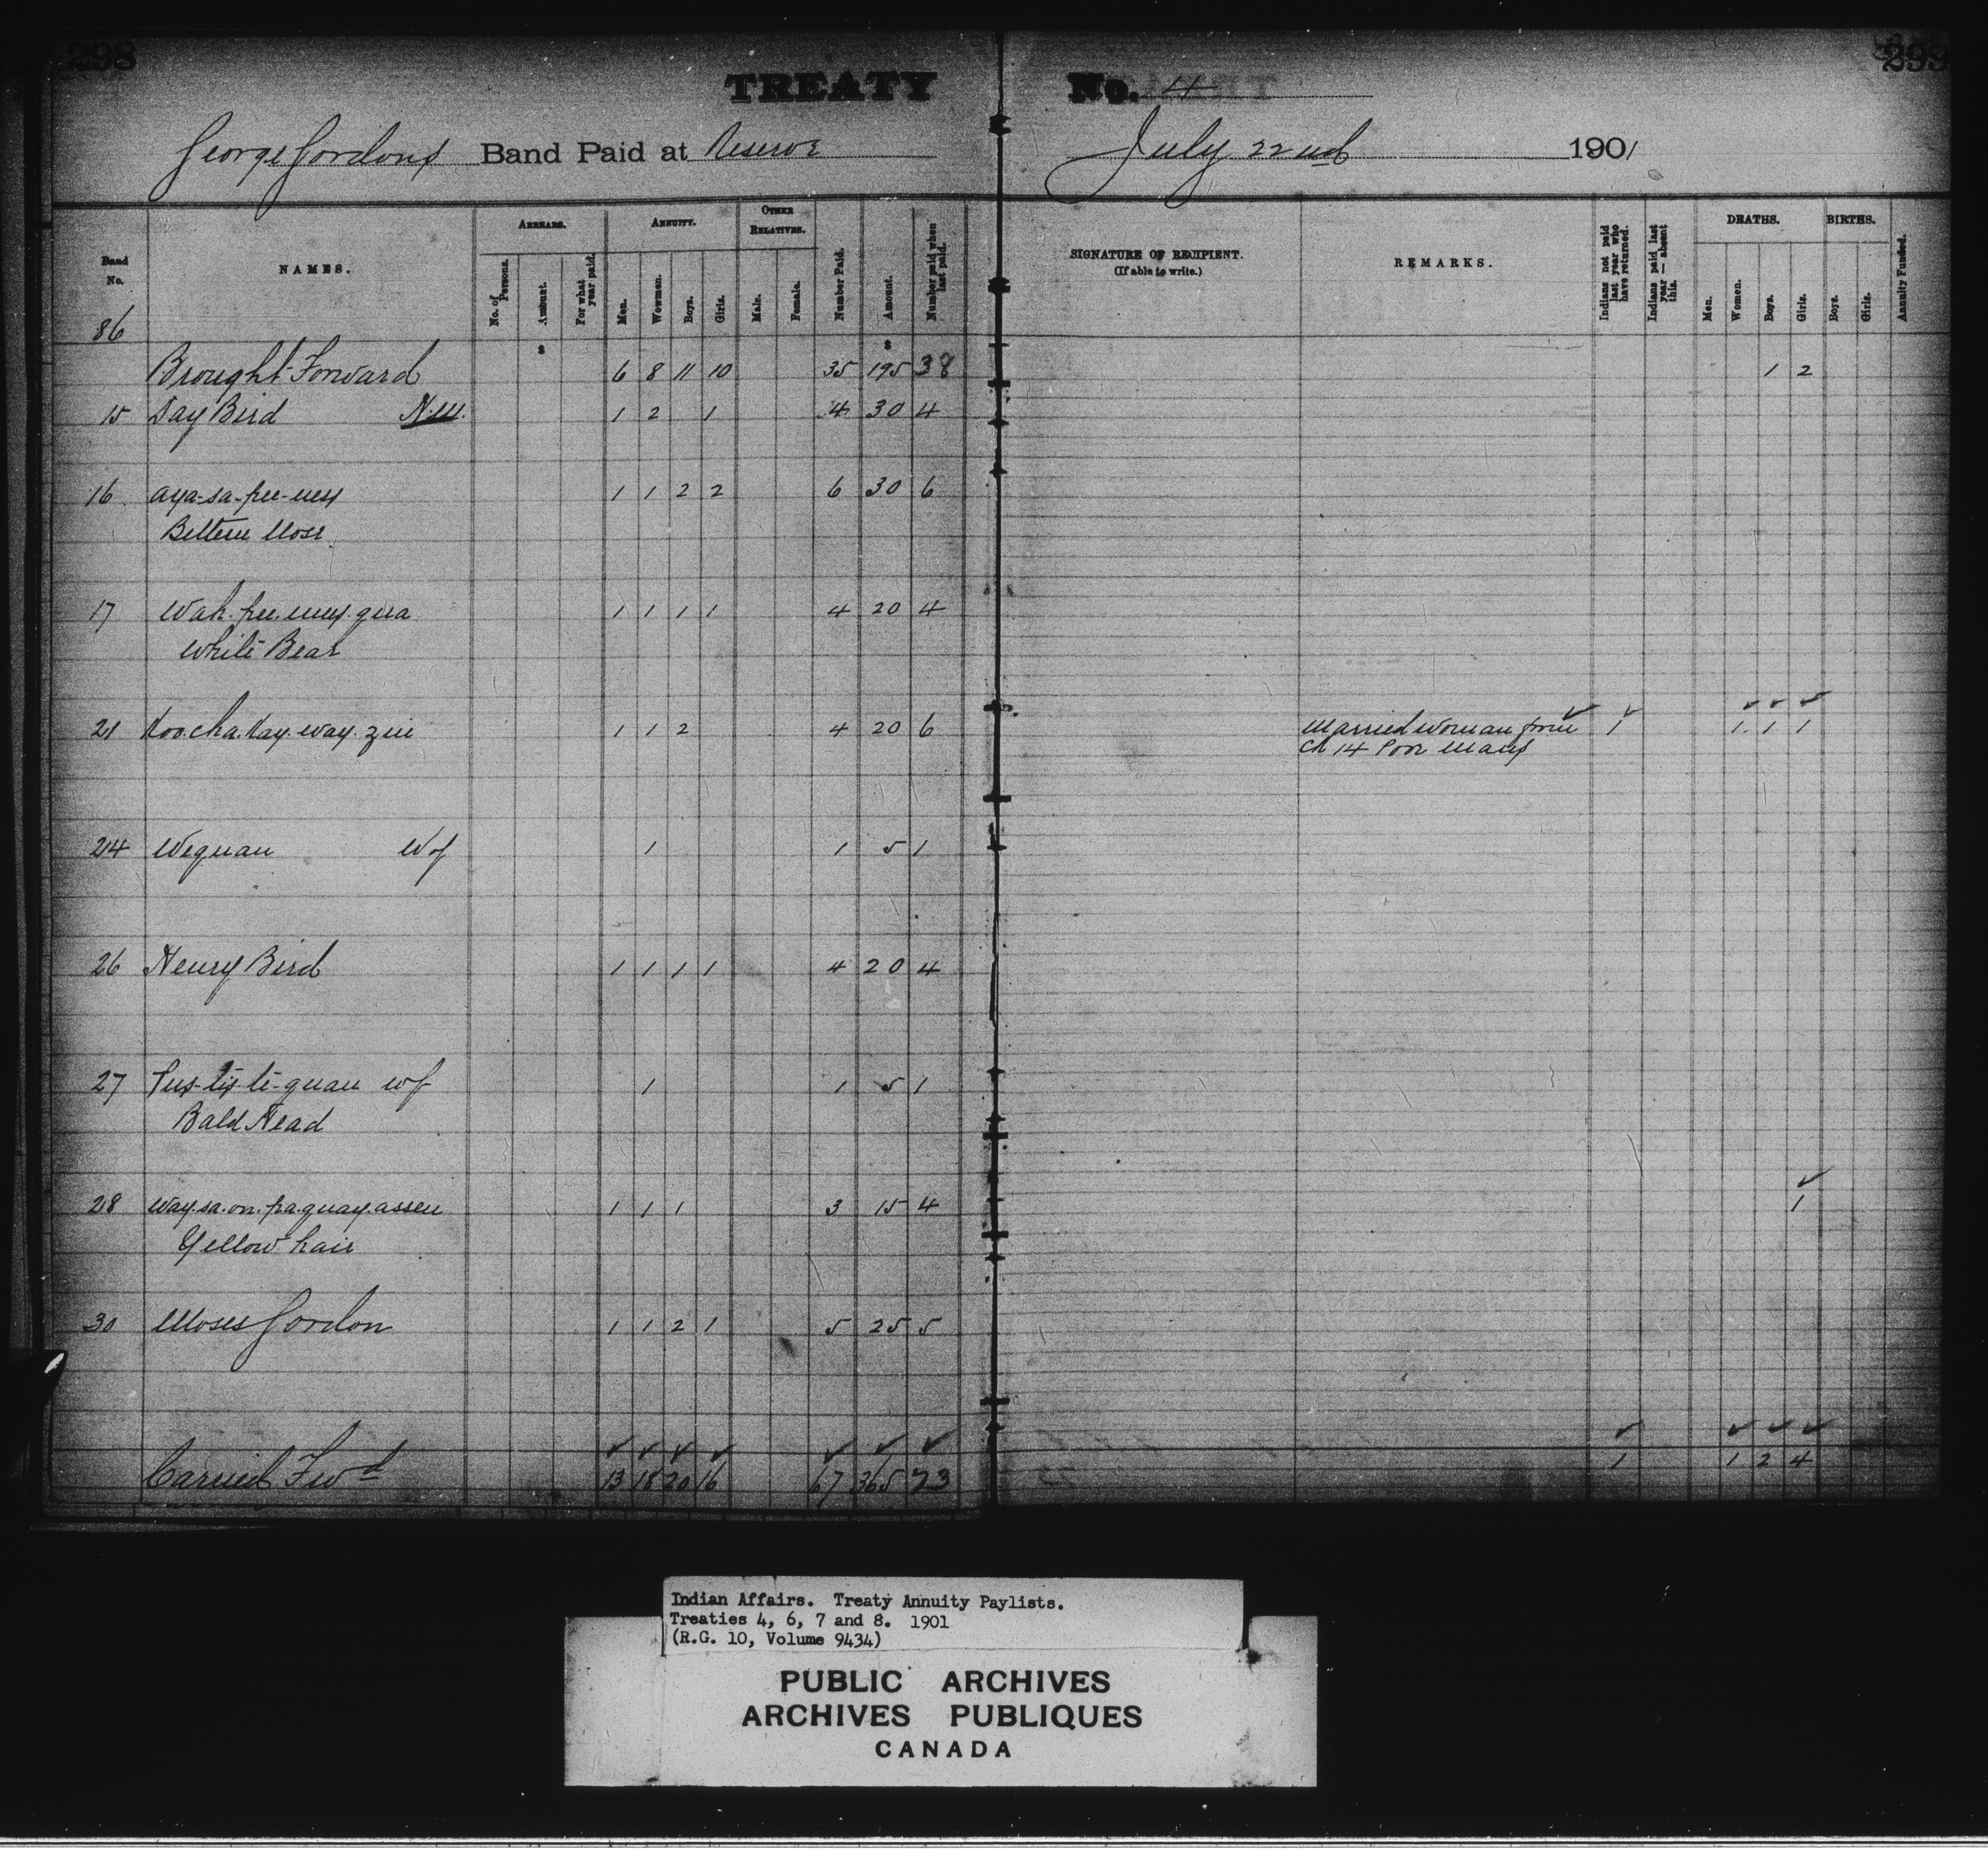 298
299
TREATY No. 4
George Gordons Band Paid at Reserve July 22nd 1901
Band No.
NAMES.
ARREARS.
No. of Persons.
Amount.
For what year paid.
ANNUITY.
Men.
Women.
Boys.
Girls.
OTHER RELATIVES.
Male.
Female.
Number Paid.
Amount.
Number paid when last paid.
SIGNATURE OF RECIPIENT.
(If able to write.)
REMARKS.
Indians not paid last year who have returned.
Indians paid last year — absent this.
DEATHS.
Men.
Women.
Boys.
Girls.
BIRTHS.
Boys.
Girls.
Annuity Funded.
86
$ $
Brought Forward 6 8 11 10 35 195 38 1 2
15 Day Bird 1 2 1 4 30 4
16 Aya-sa-pee-mey 1 1 2 2 6 30 6
17 Wah.pee.mey.qua 1 1 1 1 4 20 4
White Bear
21 Koo.cha.kay.way.zin 1 1 2 4 20 6 Married woman from 1 1. 1 1
Ch 14 Poor Mans
24 Wequan W of 1 1 5 1
26 Henry Bird 1 1 1 1 4 20 4
27 Pus-tis-te-quan w of 1 1 5 1
Bald Head
28 Way.sa.on.pa.quay.assen 1 1 1 3 15 4 1
Yellow hair
30 Moses Gordon 1 1 2 1 5 25 5
Carried Fwd 13 18 20 16 67 365 73 1 1 2 4
Indian Affairs. Treaty Annuity Paylists.
Treaties 4, 6, 7 and 8. 1901
(R.G. 10, Volume 9434)
PUBLIC ARCHIVES
ARCHIVES PUBLIQUES
CANADA